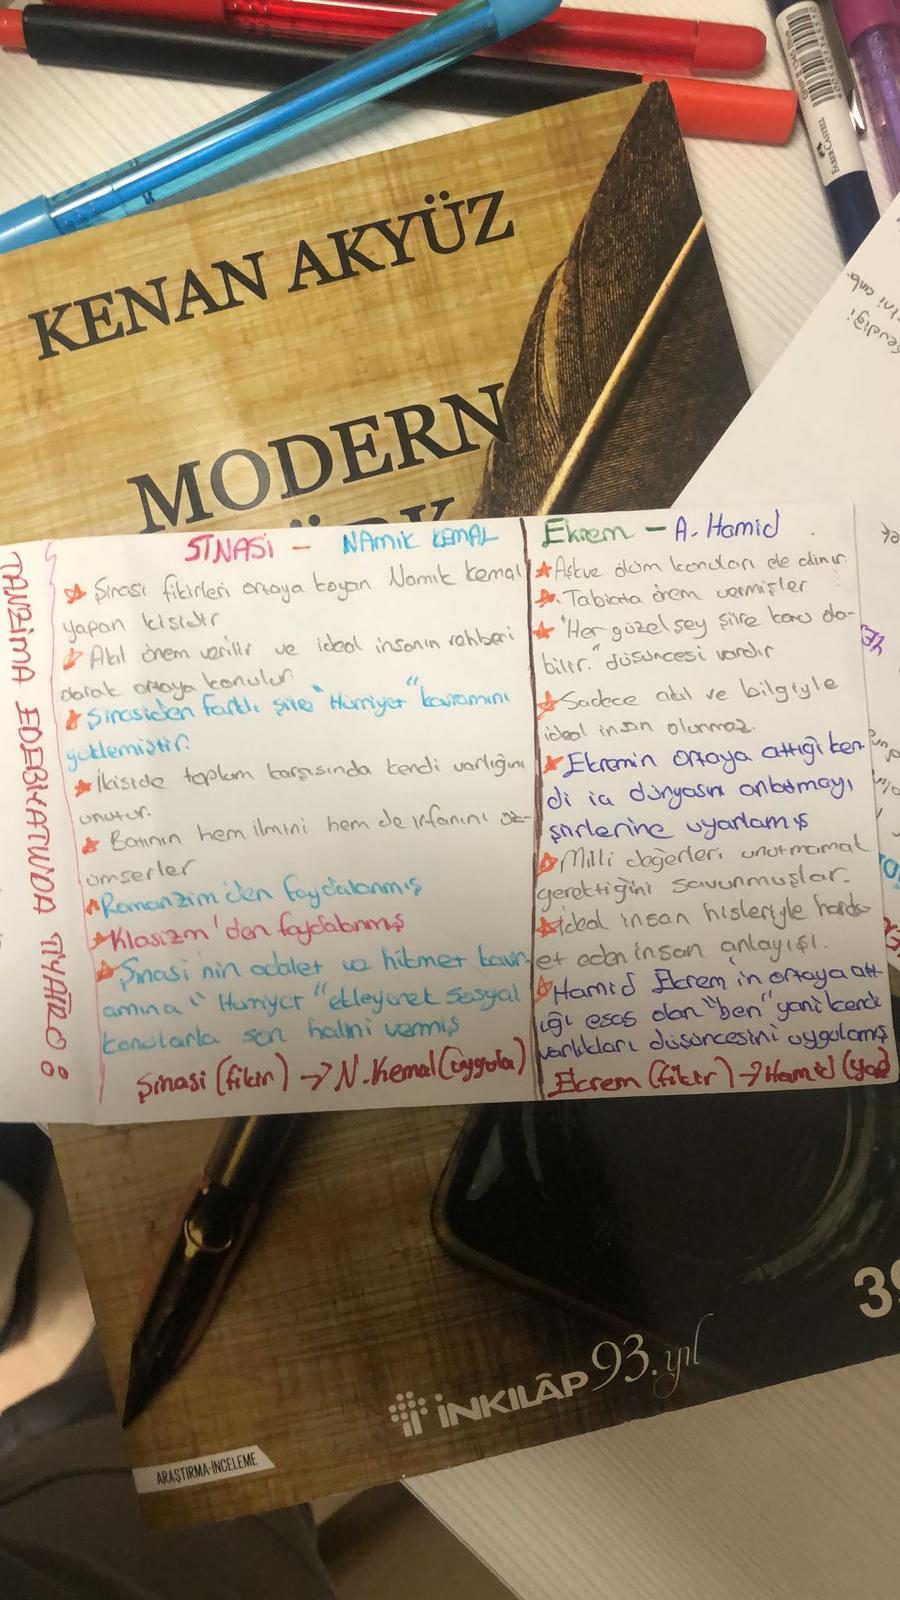 FABER-CASTELL
KENAN AKYÜZ
MODERN
TÜRK
TANZİMA EDEBİYATINDA TİYATRO
ŞİNASİ – NAMIK KEMAL
Şinasi fikirleri ortaya koyan Namık Kemal
yapan kişidir
Akıl önem verilir ve ideal insanın rehberi
olarak ortaya konulur.
Şinasiden farklı şiire "Hürriyet" kavramını
yüklemiştir.
İkiside toplum karşısında kendi varlığını
unutur.
Batının hem ilmini hem de irfanını öz-
ümserler
Romanzim'den faydalanmış
Klasizm'den faydalanmış
Şinasi'nin adalet ve hikmet kavr-
amına "Hürriyet" ekleyerek sosyal
konularla son halini vermiş
Şinasi (fikir) → N. Kemal (uygula)
Ekrem – A. Hamid
Aşk ve ölüm konuları ele alınır.
Tabiata önem vermişler
"Her güzel şey şiire konu ola-
bilir." düşüncesi vardır
Sadece akıl ve bilgiyle
ideal insan olunmaz.
Ekremin ortaya attığı ken-
di iç dünyasını anlatmayı,
şiirlerine uyarlamış
Milli değerleri unutmamak
gerektiğini savunmuşlar.
İdeal insan hisleriyle harek-
et eden insan anlayışı.
Hamid Ekrem'in ortaya att-
ığı esas olan "ben" yani kendi
varlıkları düşüncesini uygulamış
Ekrem (fikir) → Hamid (yap
39
İNKILÂP 93. yıl
ARAŞTIRMA-İNCELEME